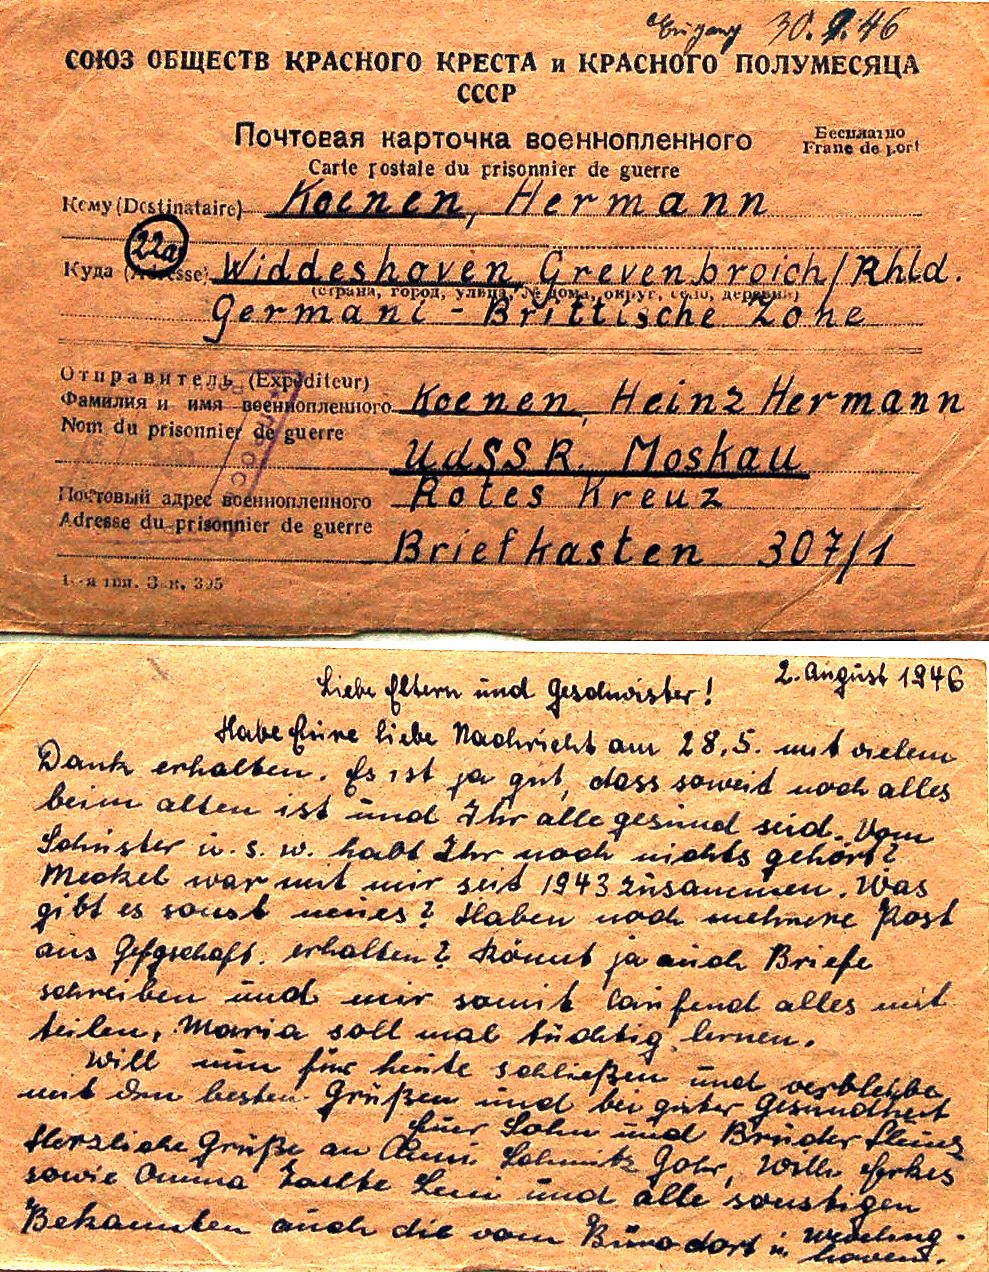 Eingang 30.9.46
СОЮЗ ОБЩЕСТВ КРАСНОГО КРЕСТА и КРАСНОГО ПОЛУМЕСЯЦА
СССР
Почтовая карточка военнопленного
Бесплатно
Franc de port
Carte postale du prisonnier de guerre
Кому (Destinataire) Koenen, Hermann
22a
Куда (Adresse) Widdeshoven Grevenbroich/Rhld.
(страна, город, улица, № дома, округ, село, деревня)
Germani - Brittische Zone
Отправитель (Expéditeur)
Фамилия и имя военнопленного Koenen, Heinz Hermann
Nom du prisonnier de guerre
UdSSR. Moskau
Почтовый адрес военнопленного Rotes Kreuz
Adresse du prisonnier de guerre
Briefkasten 307/1
тип. Зак. 395
2. August 1946
Liebe Eltern und Geschwister!
Habe Eure liebe Nachricht am 28.5. mit vielem
Dank erhalten. Es ist ja gut, dass soweit noch alles
beim alten ist und Ihr alle gesund seid. Vom
Schuster u. s. w. habt Ihr noch nichts gehört?
Meckel war mit mir seit 1943 zusammen. Was
gibt es sonst neues? Haben noch mehrere Post
aus Gefgschaft. erhalten? Könnt ja auch Briefe
schreiben und mir somit laufend alles mit
teilen. Maria soll mal tüchtig lernen.
Will nun für heute schließen und verbleibe
mit den besten Grüßen und bei guter Gesundheit
Euer Sohn und Bruder Heinz
Herzliche Grüße an Schmitz Gohr, Willi
sowie Omma Tante Leni und alle sonstigen
Bekannten auch die vom Büro dort u. Weveling-
hoven.